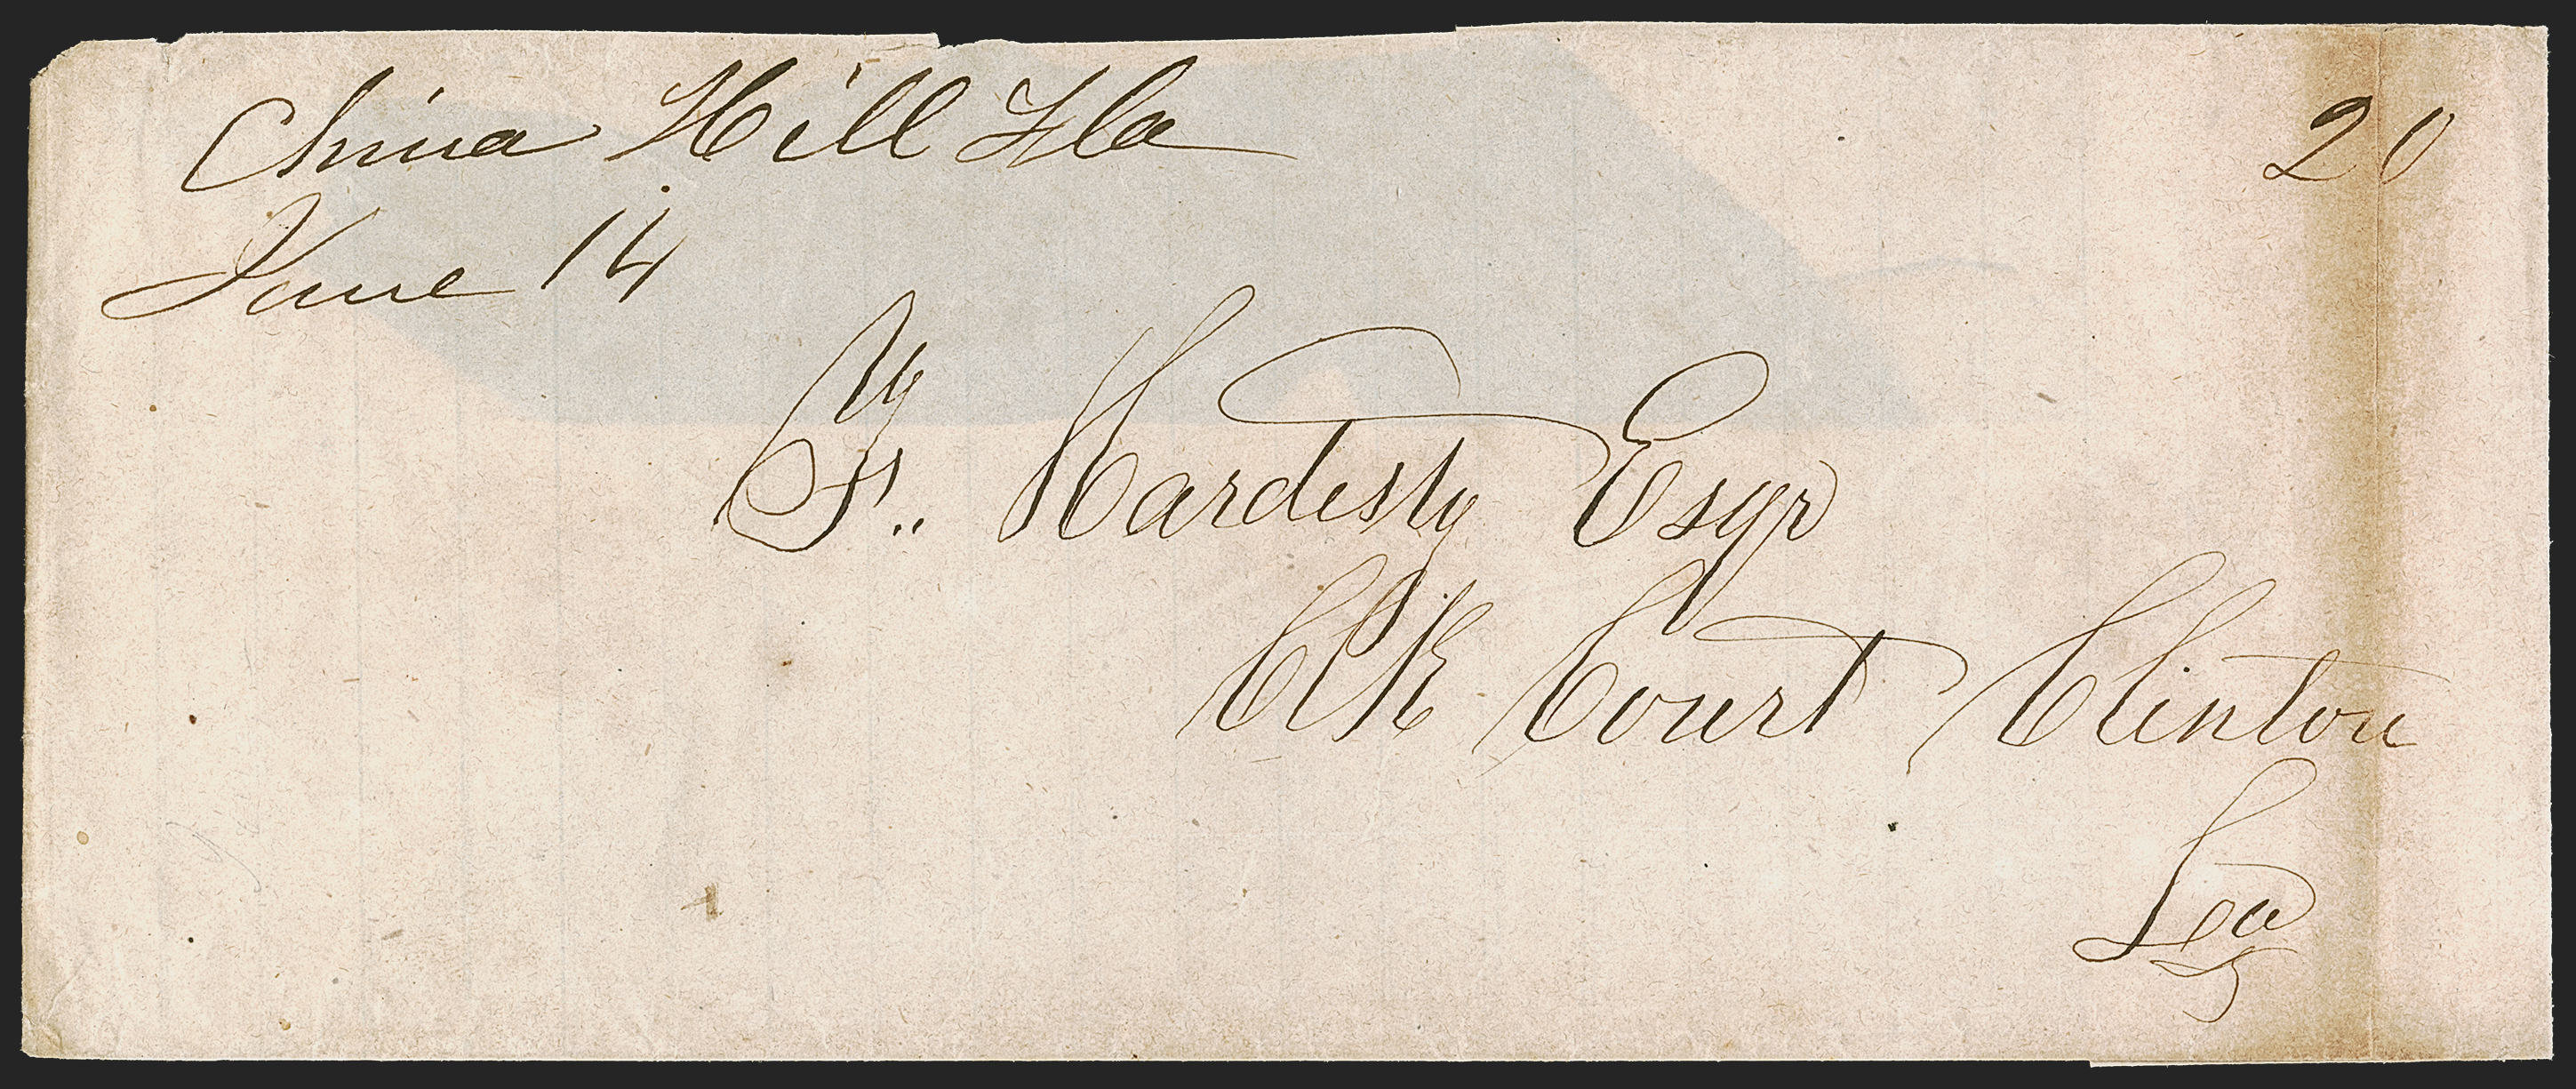 China Hill Fla 20
June 14
F.. Hardesty Esqr
Clk Court Clinton
Lea